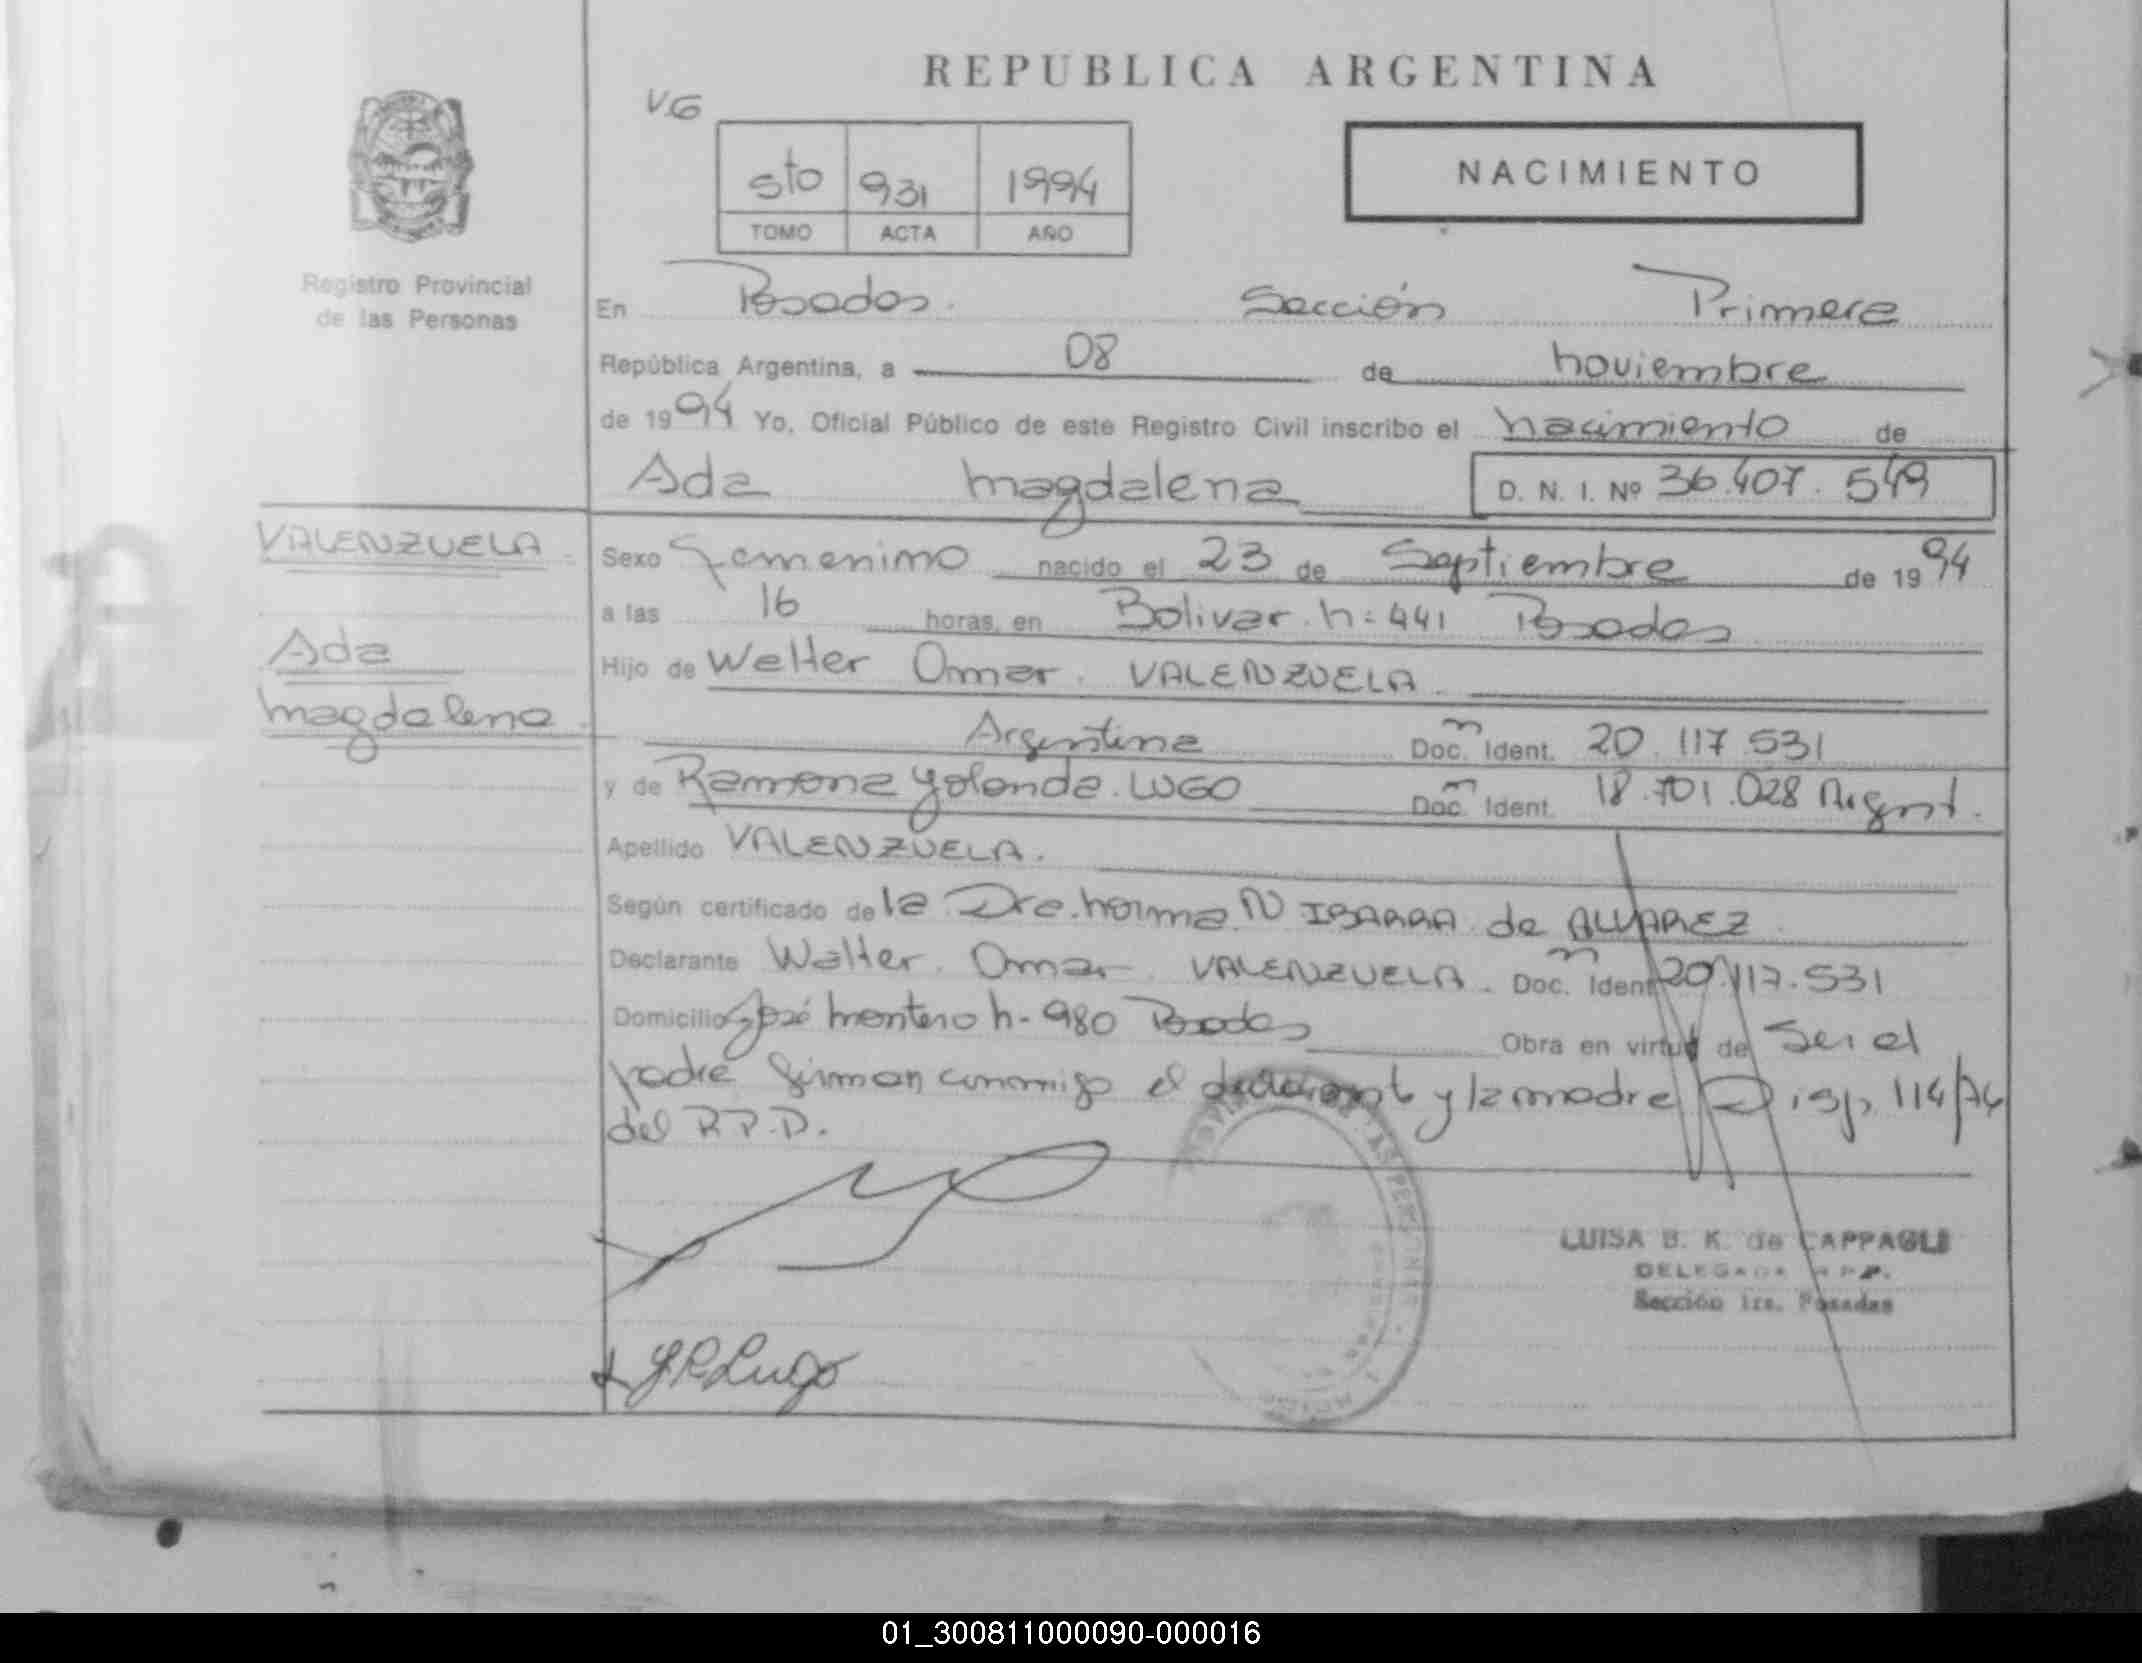 REPUBLICA ARGENTINA
VG
5to 931 1994
TOMO ACTA AÑO
NACIMIENTO
Registro Provincial
de las Personas
En Posadas. Sección Primera
República Argentina, a 08 de noviembre
de 1994 Yo, Oficial Público de este Registro Civil inscribo el nacimiento de
Ada Magdalena D. N. I. Nº 36.407.549
VALENZUELA
Ada
Magdalena
Sexo Femenino nacido el 23 de Septiembre de 1994
a las 16 horas, en Bolivar. n: 441 Posadas
Hijo de Walter Omar. VALENZUELA.
Argentina Doc. Ident. 20.117.531
y de Ramona Yolanda. LUGO Doc. Ident. 18.701.028 Argent.
Apellido VALENZUELA.
Según certificado de la Dra. Norma N IBARRA de ALVAREZ
Declarante Walter. Omar. VALENZUELA. Doc. Ident 20.117.531
Domicilio José Montero n- 980 Posadas Obra en virtud de Ser el
padre firman conmigo el declarante y la madre Disp. 114/74
del R.P.D.
LUISA B. K. de CAPPAGLI
DELEGADA R.P.P.
Sección 1ra. Posadas
Y R Lugo
01_300811000090-000016